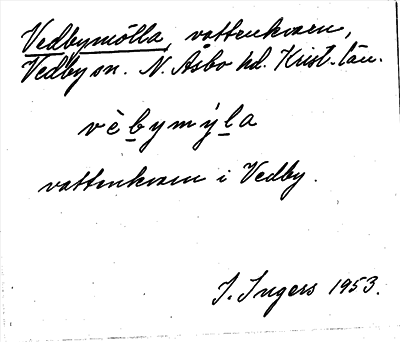 Vedbymölla, vattenkvarn,
Vedby sn. N. Åsbo hd. Krist. län.
vèbymýla
vattenkvarn i Vedby.
I. Ingers 1953.